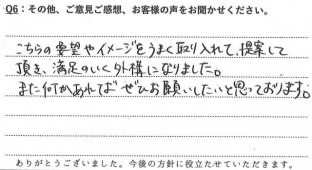 Q6：その他、ご意見ご感想、お客様の声をお聞かせください。
こちらの要望やイメージをうまく取り入れて、提案して
頂き、満足のいく外構になりました。
また何かあればぜひお願いしたいと思っております。
ありがとうございました。今後の方針に役立たせていただきます。